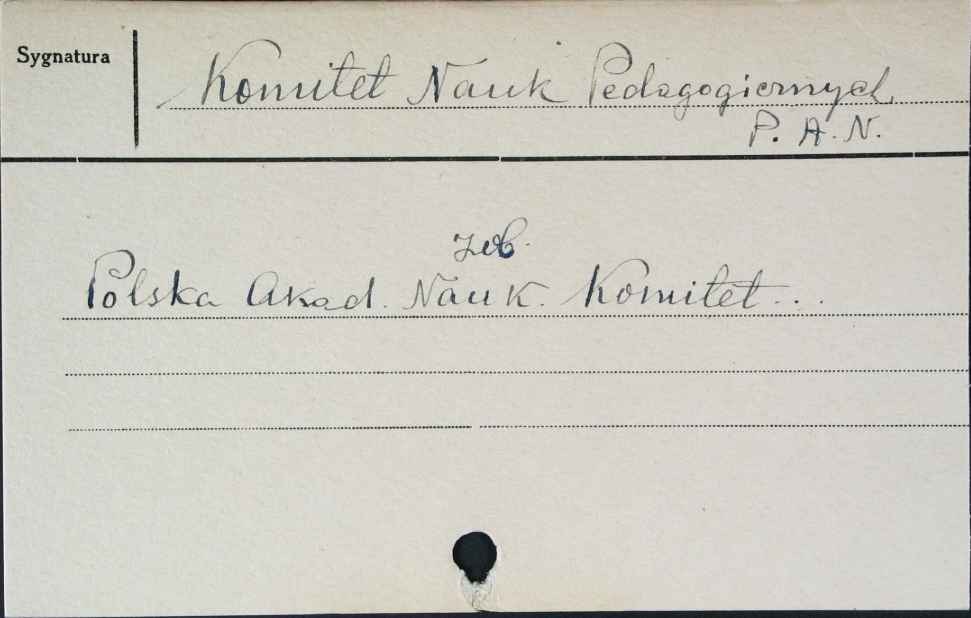 Sygnatura
Komitet Nauk Pedagogicznych
P. A. N.
zob.
Polska Akad. Nauk. Komitet...